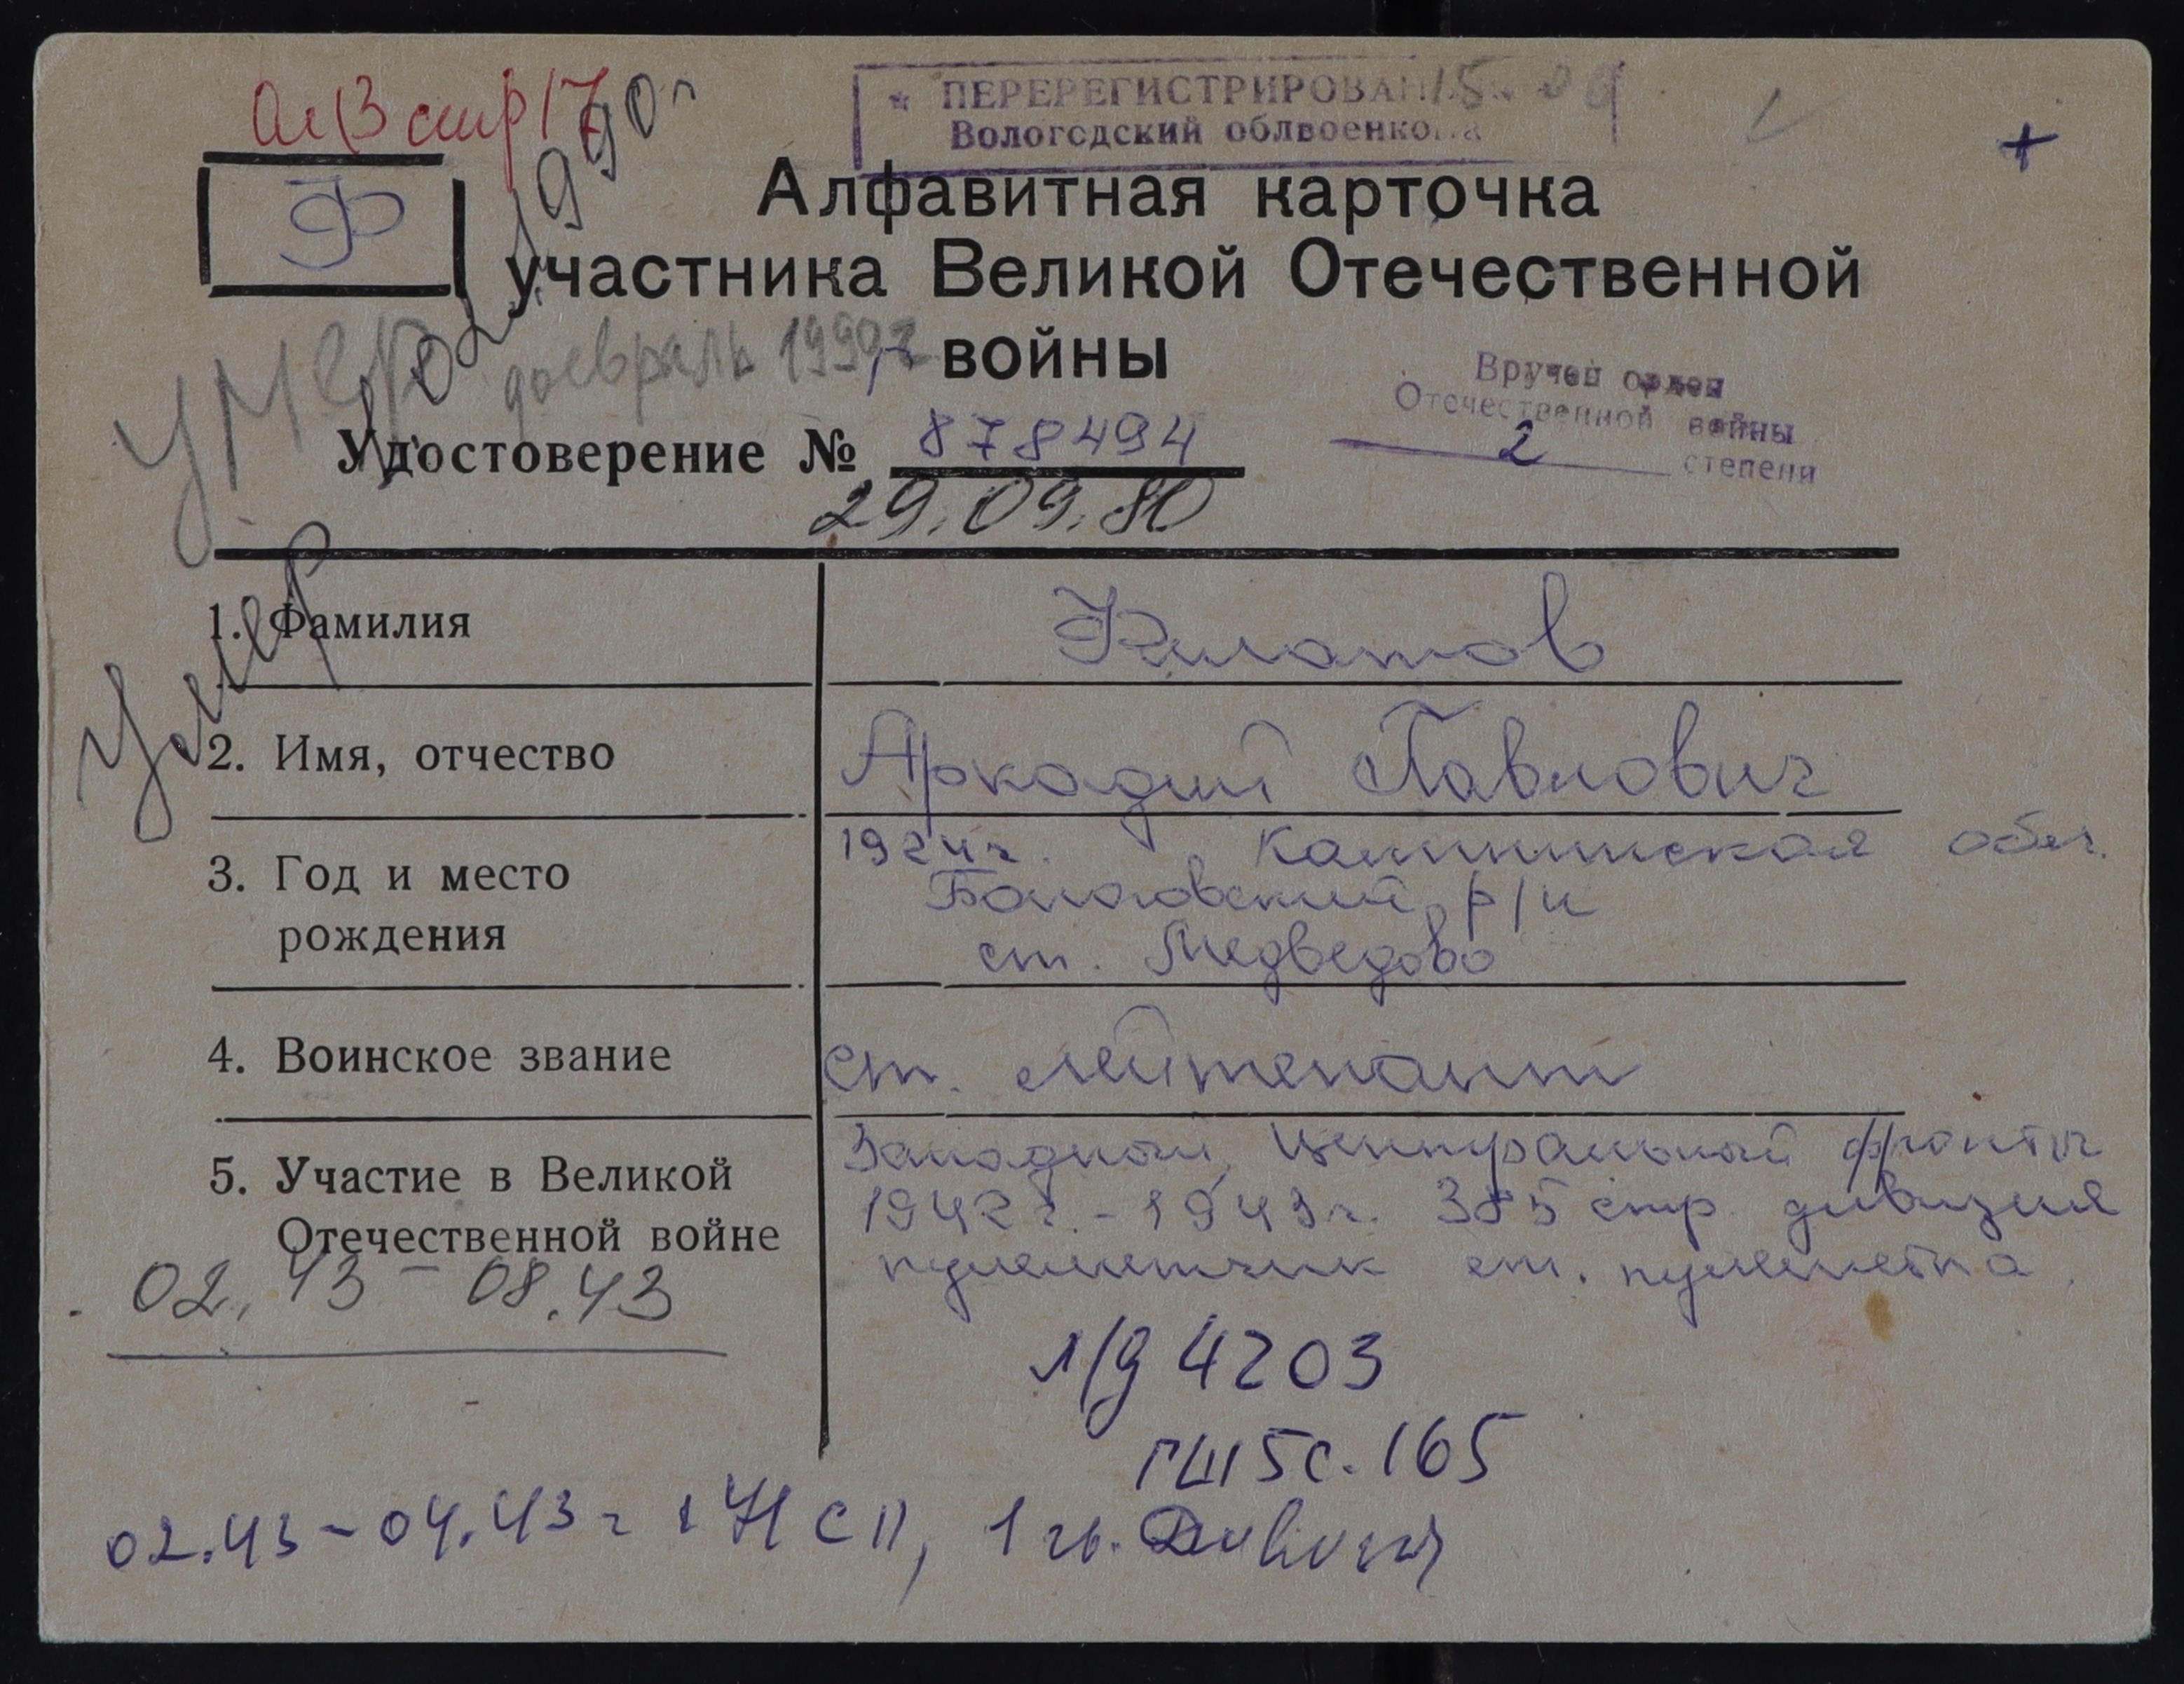 Ал 3 стр 17
ПЕРЕРЕГИСТРИРОВАН 15. 09
Вологодский облвоенкомат
Ф
Алфавитная карточка
участника Великой Отечественной
войны
умер 02.1990г
умер февраль 1990г
Вручен орден
Отечественной войны
2 степени
Удостоверение № 878494
29.09.80
умер
1. Фамилия Филатов
2. Имя, отчество Аркадий Павлович
3. Год и место 1924г. Калининская обл.
рождения Бологовский р/н
ст. Медведово
4. Воинское звание ст. лейтенант
5. Участие в Великой Западный, Центральный фронты
Отечественной войне 1942г. - 1943г. 385 стр. дивизия
пулеметчик ст. пулемета
02.43 - 08.43
л/д 4203
ГШ 5 с. 165
02.43 - 04.43г СП, 1 гв. Дивизия